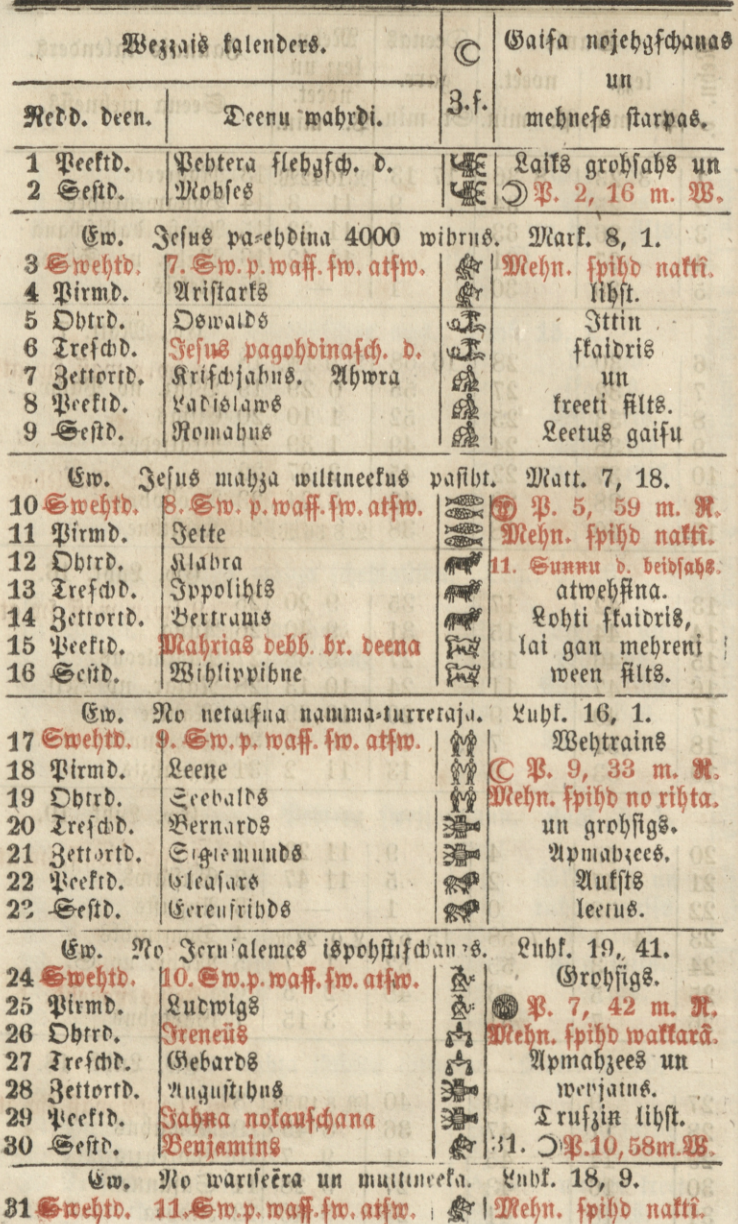 Wezzais kalenders. ☾ Gaisa nojehgschanas
un
Redd. deen. Deenu wahrdi. Z.f. mehness starpas.
1 Peektd. Pehtera slehgsch. d. Laiks grohsahs un
2 Sestd. Mohses P. 2, 16 m. W.
Ew. Jesus pa-ehdina 4000 wihrus. Mark. 8, 1.
3 Swehtd. 7. Sw. p. wass. sw. atsw. Mehn. spihd naktî.
4 Pirmd. Aristarks lihst.
5 Ohtrd. Oswalds Ittin
6 Treschd. Jesus pagohdinasch. d. skaidris
7 Zettortd. Krischjahns. Ahwra un
8 Peektd. Ladislaws kreeti silts.
9 Sestd. Romahnus Leetus gaisu
Ew. Jesus mahza wiltineekus pasiht. Matt. 7, 18.
10 Swehtd. 8. Sw. p. wass. sw. atsw. P. 5, 59 m. R.
11 Pirmd. Jette Mehn. spihd naktî.
12 Ohtrd. Klahra 11. Sunnu d. beidsahs.
13 Treschd. Ippolihts atwehsina.
14 Zettortd. Bertrams Lohti skaidris,
15 Peektd. Mahrias debb. br. deena lai gan mehreni
16 Sestd. Wihlippihne ween silts.
Ew. No netaisna namma-turretaja. Luhk. 16, 1.
17 Swehtd. 9. Sw. p. wass. sw. atsw. Wehtrains
18 Pirmd. Leene ☾ P. 9, 33 m. R.
19 Ohtrd. Seebalds Mehn. spihd no rihta.
20 Treschd. Bernards un grohsigs.
21 Zettortd. Sigismunds Apmahzees.
22 Peektd. Gleasars Auksts
23 Sestd. Eerenfrihds leetus.
Ew. No Jerusalemes ispohstischanas. Luhk. 19, 41.
24 Swehtd. 10. Sw. p. wass. sw. atsw. Grohsigs.
25 Pirmd. Ludwigs P. 7, 42 m. R.
26 Ohtrd. Ireneüs Mehn. spihd wakkarâ.
27 Treschd. Gebards Apmahzees un
28 Zettortd. Augustihns wehjains.
29 Peektd. Jahna nokauschana Truszin lihst.
30 Sestd. Benjamins 31. P. 10, 58 m. W.
Ew. No wariseera un muitineeka. Luhk. 18, 9.
31 Swehtd. 11. Sw. p. wass. sw. atsw. Mehn. spihd naktî.